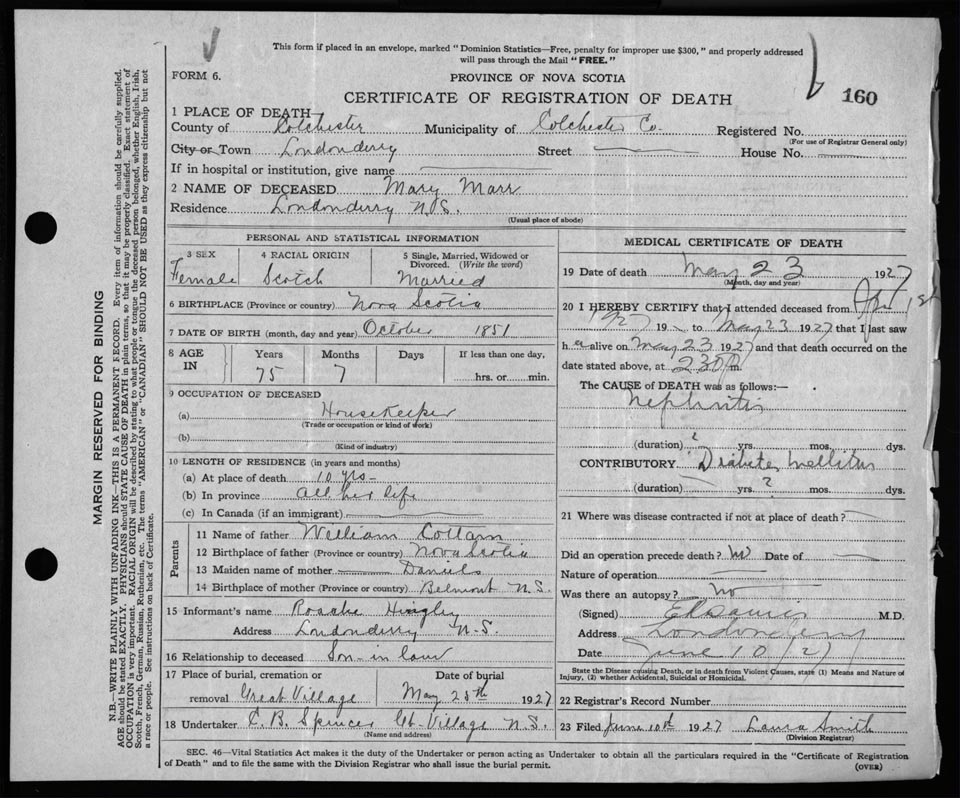 This form if placed in an envelope, marked "Dominion Statistics—Free, penalty for improper use $300," and properly addressed
will pass through the Mail "FREE."
FORM 6.
PROVINCE OF NOVA SCOTIA
CERTIFICATE OF REGISTRATION OF DEATH
160
1 PLACE OF DEATH
County of Colchester Municipality of Colchester Co. Registered No.
(For use of Registrar General only)
City or Town Londonderry Street House No.
If in hospital or institution, give name
2 NAME OF DECEASED Mary Marr
Residence Londonderry N.S.
(Usual place of abode)
PERSONAL AND STATISTICAL INFORMATION
3 SEX Female
4 RACIAL ORIGIN Scotch
5 Single, Married, Widowed or Divorced. (Write the word) Married
6 BIRTHPLACE (Province or country) Nova Scotia
7 DATE OF BIRTH (month, day and year) October 1851
8 AGE IN Years Months Days If less than one day,
75 7 hrs. or min.
9 OCCUPATION OF DECEASED
(a) Housekeeper
(Trade or occupation or kind of work)
(b)
(Kind of industry)
10 LENGTH OF RESIDENCE (in years and months)
(a) At place of death 10 yrs-
(b) In province all her life
(c) In Canada (if an immigrant)
Parents
11 Name of father William Cottam
12 Birthplace of father (Province or country) Nova Scotia
13 Maiden name of mother Daniels
14 Birthplace of mother (Province or country) Belmont N.S.
15 Informant's name Hingley
Address Londonderry N.S.
16 Relationship to deceased Son-in law
17 Place of burial, cremation or removal Great Village
Date of burial May 25th 1927
18 Undertaker C. B. Spencer Gt. Village N.S.
(Name and address)
MEDICAL CERTIFICATE OF DEATH
19 Date of death May 23 1927
(Month, day and year)
20 I HEREBY CERTIFY that I attended deceased from Apr 1st
1927 19 to May 23 1927 that I last saw
h er alive on May 23 1927 and that death occurred on the
date stated above, at 2 30 P m.
The CAUSE of DEATH was as follows:—
Nephritis
(duration) ? yrs. mos. dys.
CONTRIBUTORY Diabetes Mellitus
(duration) yrs. ? mos. dys.
21 Where was disease contracted if not at place of death?
Did an operation precede death? No Date of
Nature of operation
Was there an autopsy? No
(Signed) M.D.
Address Londonderry
Date June 10/27
State the Disease causing Death, or in death from Violent Causes, state (1) Means and Nature of
Injury, (2) whether Accidental, Suicidal or Homicidal.
22 Registrar's Record Number
23 Filed June 10th 1927 Laura Smith
(Division Registrar)
SEC. 46—Vital Statistics Act makes it the duty of the Undertaker or person acting as Undertaker to obtain all the particulars required in the "Certificate of Registration
of Death" and to file the same with the Division Registrar who shall issue the burial permit.
(OVER)
MARGIN RESERVED FOR BINDING
N.B.—WRITE PLAINLY WITH UNFADING INK—THIS IS A PERMANENT RECORD. Every item of information should be carefully supplied.
AGE should be stated EXACTLY. PHYSICIANS should STATE CAUSE OF DEATH in plain terms, so that it may be properly classified. Exact statement of
OCCUPATION is very important. RACIAL ORIGIN will be described by stating to what people or tongue the deceased person belonged, whether English, Irish,
Scotch, French, German, Russian, Ruthenian, etc. The terms "AMERICAN" or "CANADIAN" SHOULD NOT BE USED as they express citizenship but not
a race or people. See instructions on back of Certificate.